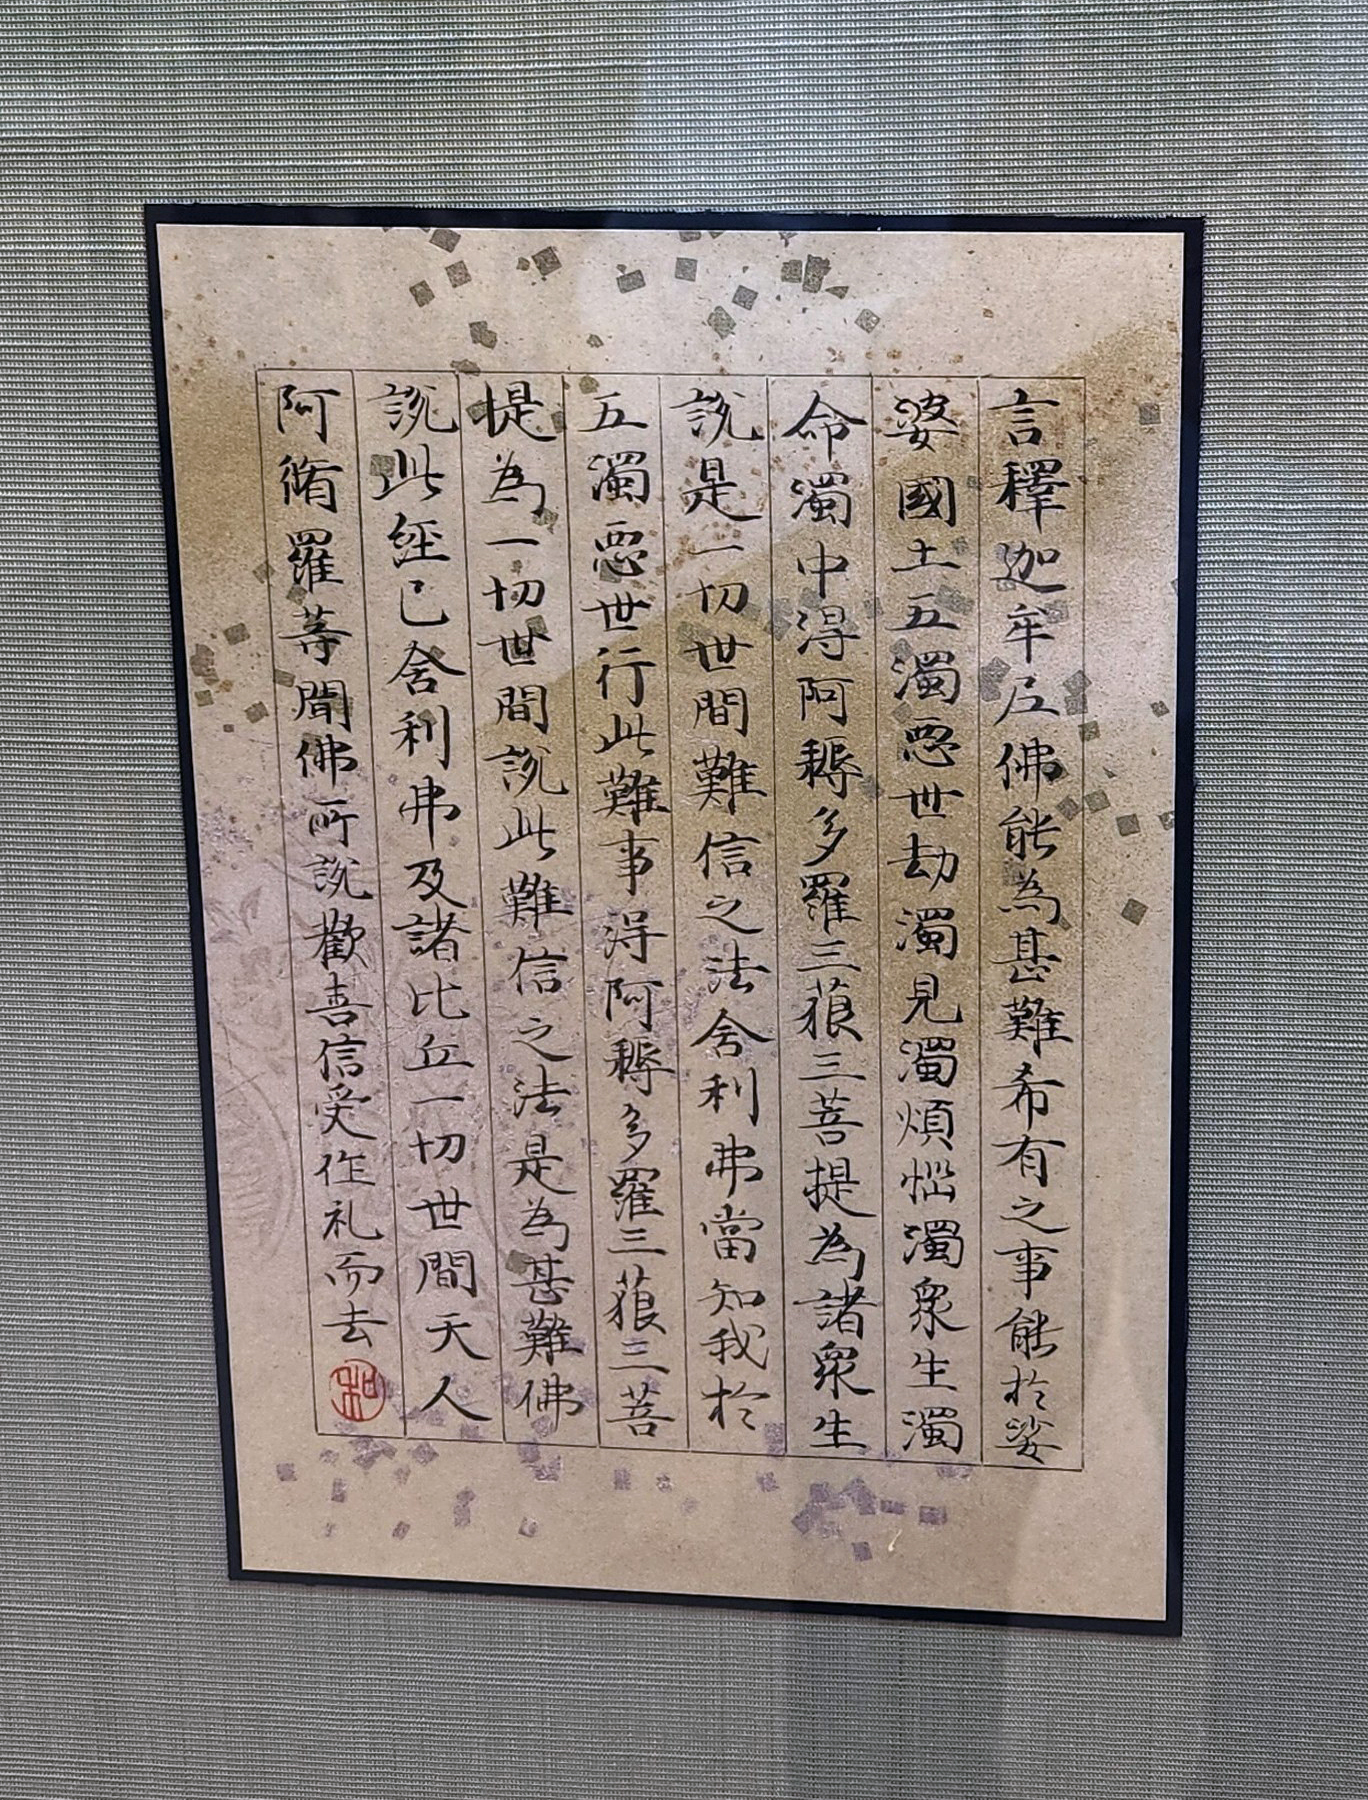 言釋迦牟尼佛能為甚難希有之事能於娑
婆國土五濁惡世劫濁見濁煩惱濁衆生濁
命濁中得阿耨多羅三藐三菩提為諸衆生
說是一切世間難信之法舍利弗當知我於
五濁惡世行此難事得阿耨多羅三藐三菩
提為一切世間說此難信之法是為甚難佛
說此經已舍利弗及諸比丘一切世間天人
阿脩羅等聞佛所說歡喜信受作礼而去
和